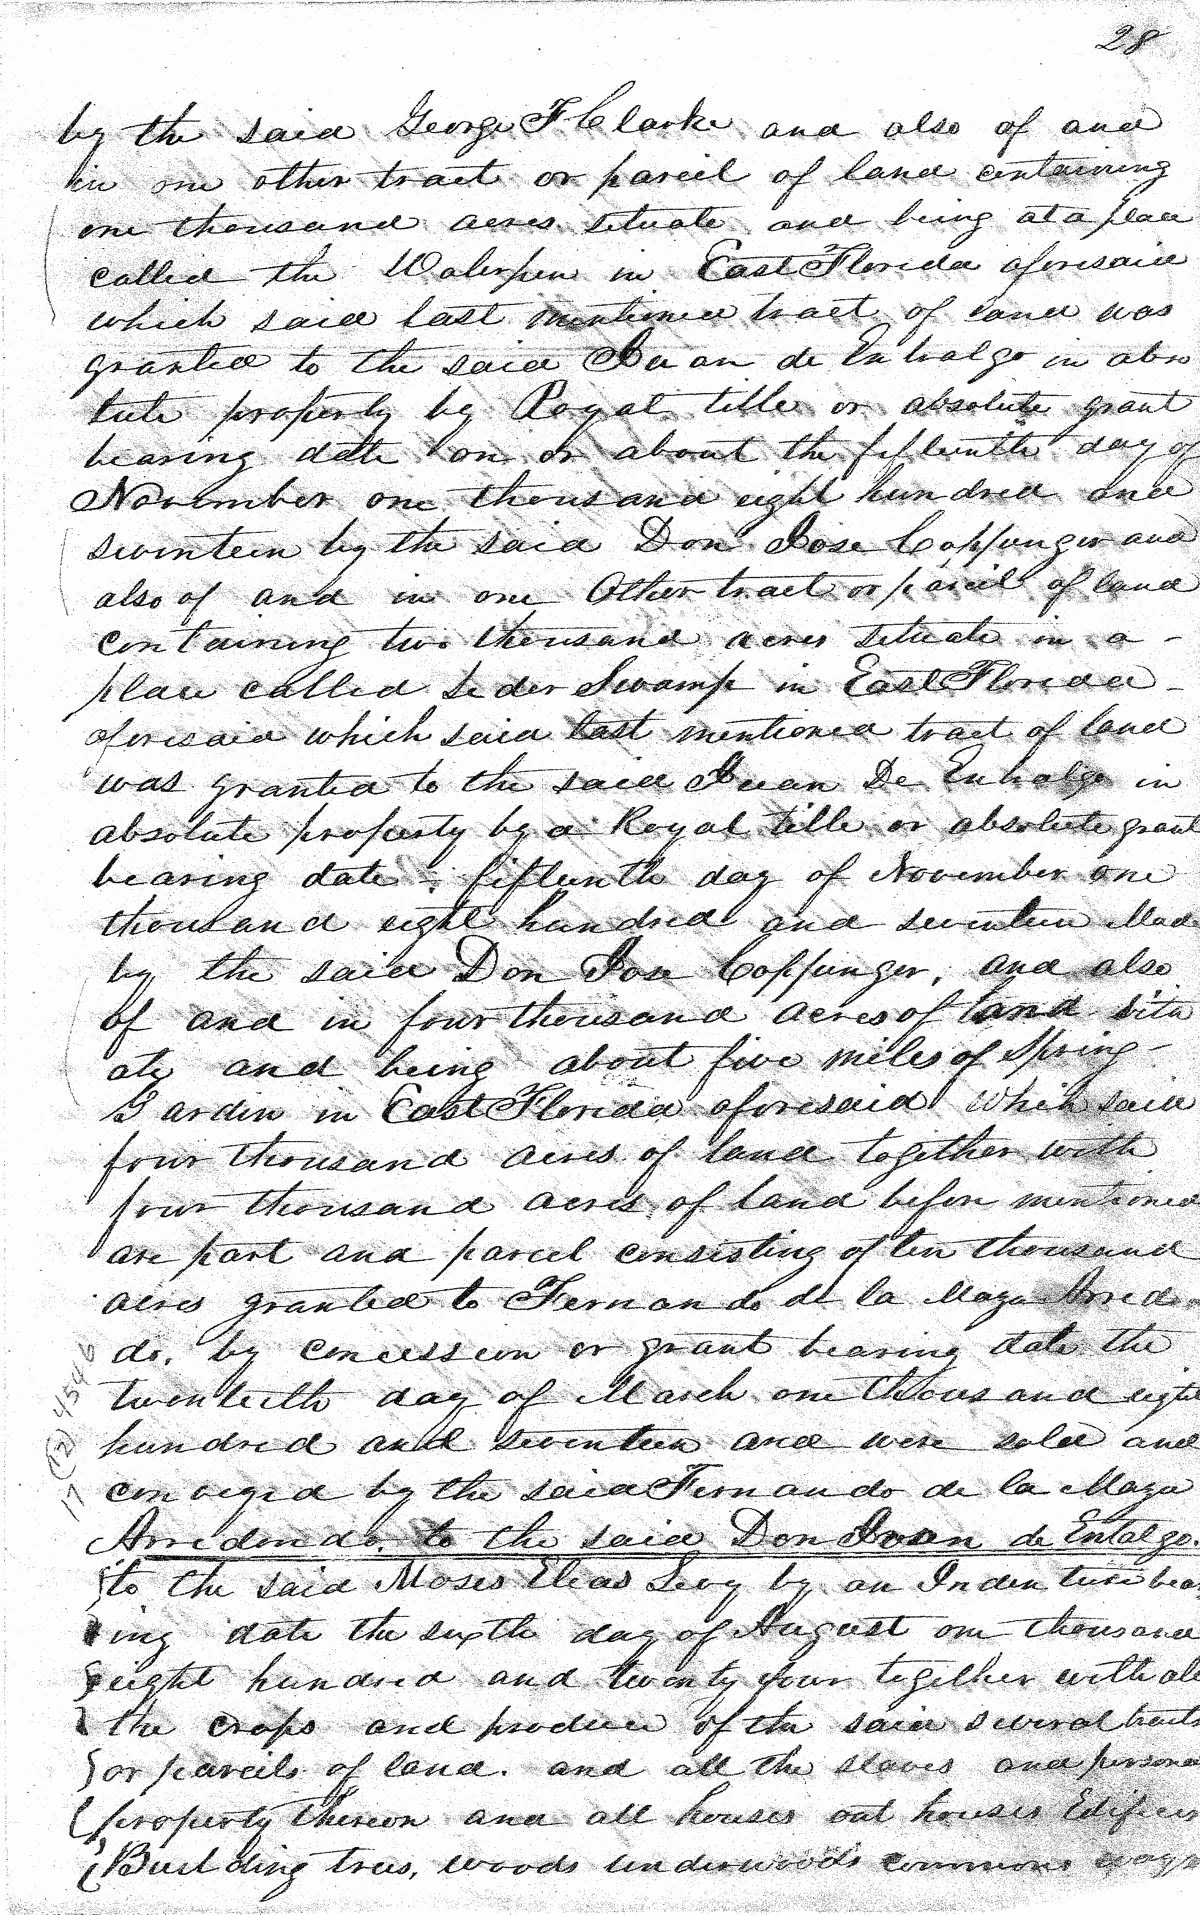 28
by the said George F Clarke and also of and
in one other tract or parcel of land containing
one thousand acres situate and being at a place
called the Waterpen in East Florida aforesaid
which said last mentioned tract of land was
granted to the said Juan de Entralgo in abso
lute property by Royal title or absolute grant
bearing date on or about the fifteenth day of
November one thousand eight hundred and
seventeen by the said Don Jose Coppinger and
also of and in one Other tract or parcel of land
containing two thousand acres situate in a -
place called Seder Swamp in East Florida -
aforesaid which said last mentioned tract of land
was granted to the said Juan De Entralgo in
absolute property by a Royal title or absolute grant
bearing date : fifteenth day of November one
thousand eight hundred and seventeen Mad
by the said Don Jose Coppinger, and also
of and in four thousand acres of land situ
ate and being about five miles of Spring -
Garden in East Florida aforesaid Which said
four thousand acres of land together with
four thousand acres of land before mentioned
are part and parcel consisting of ten thousand
acres granted to Fernando de la Maza Arredon
do. by concession or grant bearing date the
twentieth day of March one thousand eight
hundred and seventeen and were sold and
conveyed by the said Fernando de la Maza
Arredondo. to the said Don Juan de Entalgo.
to the said Moses Elias Levy by an Indenture bear
ing date the sixth day of August one thousand
eight hundred and twenty four together with all
the crops and produce of the said several tracts
or parcels of land. and all the slaves and personal
property thereon and all houses out houses Edifices
Building trees, woods underwoods commons ways
17 (12) 454